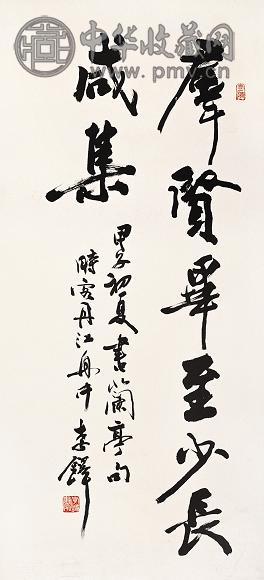 中华收藏网
www.pmv.cn
羣賢畢至少長
咸集
甲子初夏書蘭亭句
時客丹江舟中 李鐸